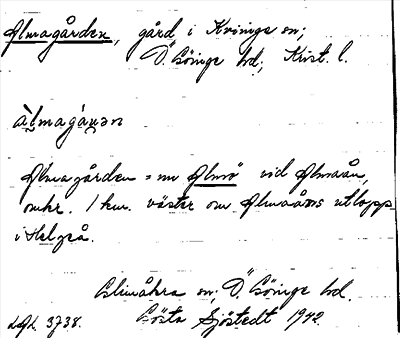 Almagården, gård i Kvinge sn;
Ö. Göinge hd; Krist. l.
Almagården = nu Almö vid Almaån,
omkr. 1 km. väster om Almaåns utlopp
i Helgeå.
Glimåkra sn; Ö. Göinge hd.
Gösta Sjöstedt 1942.
LAL. 3738.